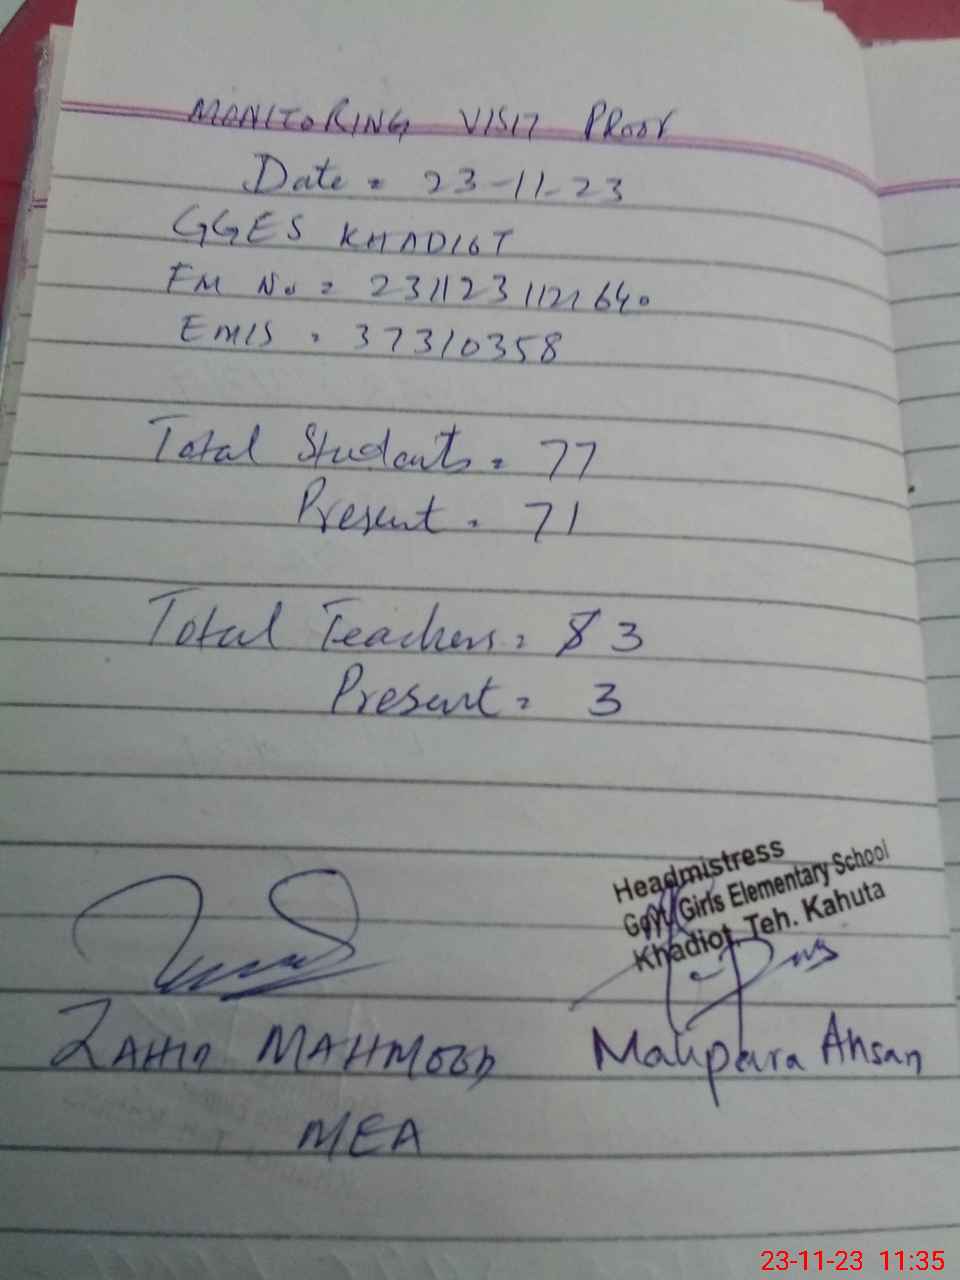 MONITORING VISIT PROOF
Date = 23-11-23
GGES KHADIOT
FM No = 231123112164০
EMIS = 37310358
Total Students = 77
Present = 71
Total Teachers = 3
Present = 3
Headmistress
Govt. Girls Elementary School
Khadiot, Teh. Kahuta
ZAHID MAHMOOD
Mahpara Ahsan
MEA
23-11-23 11:35